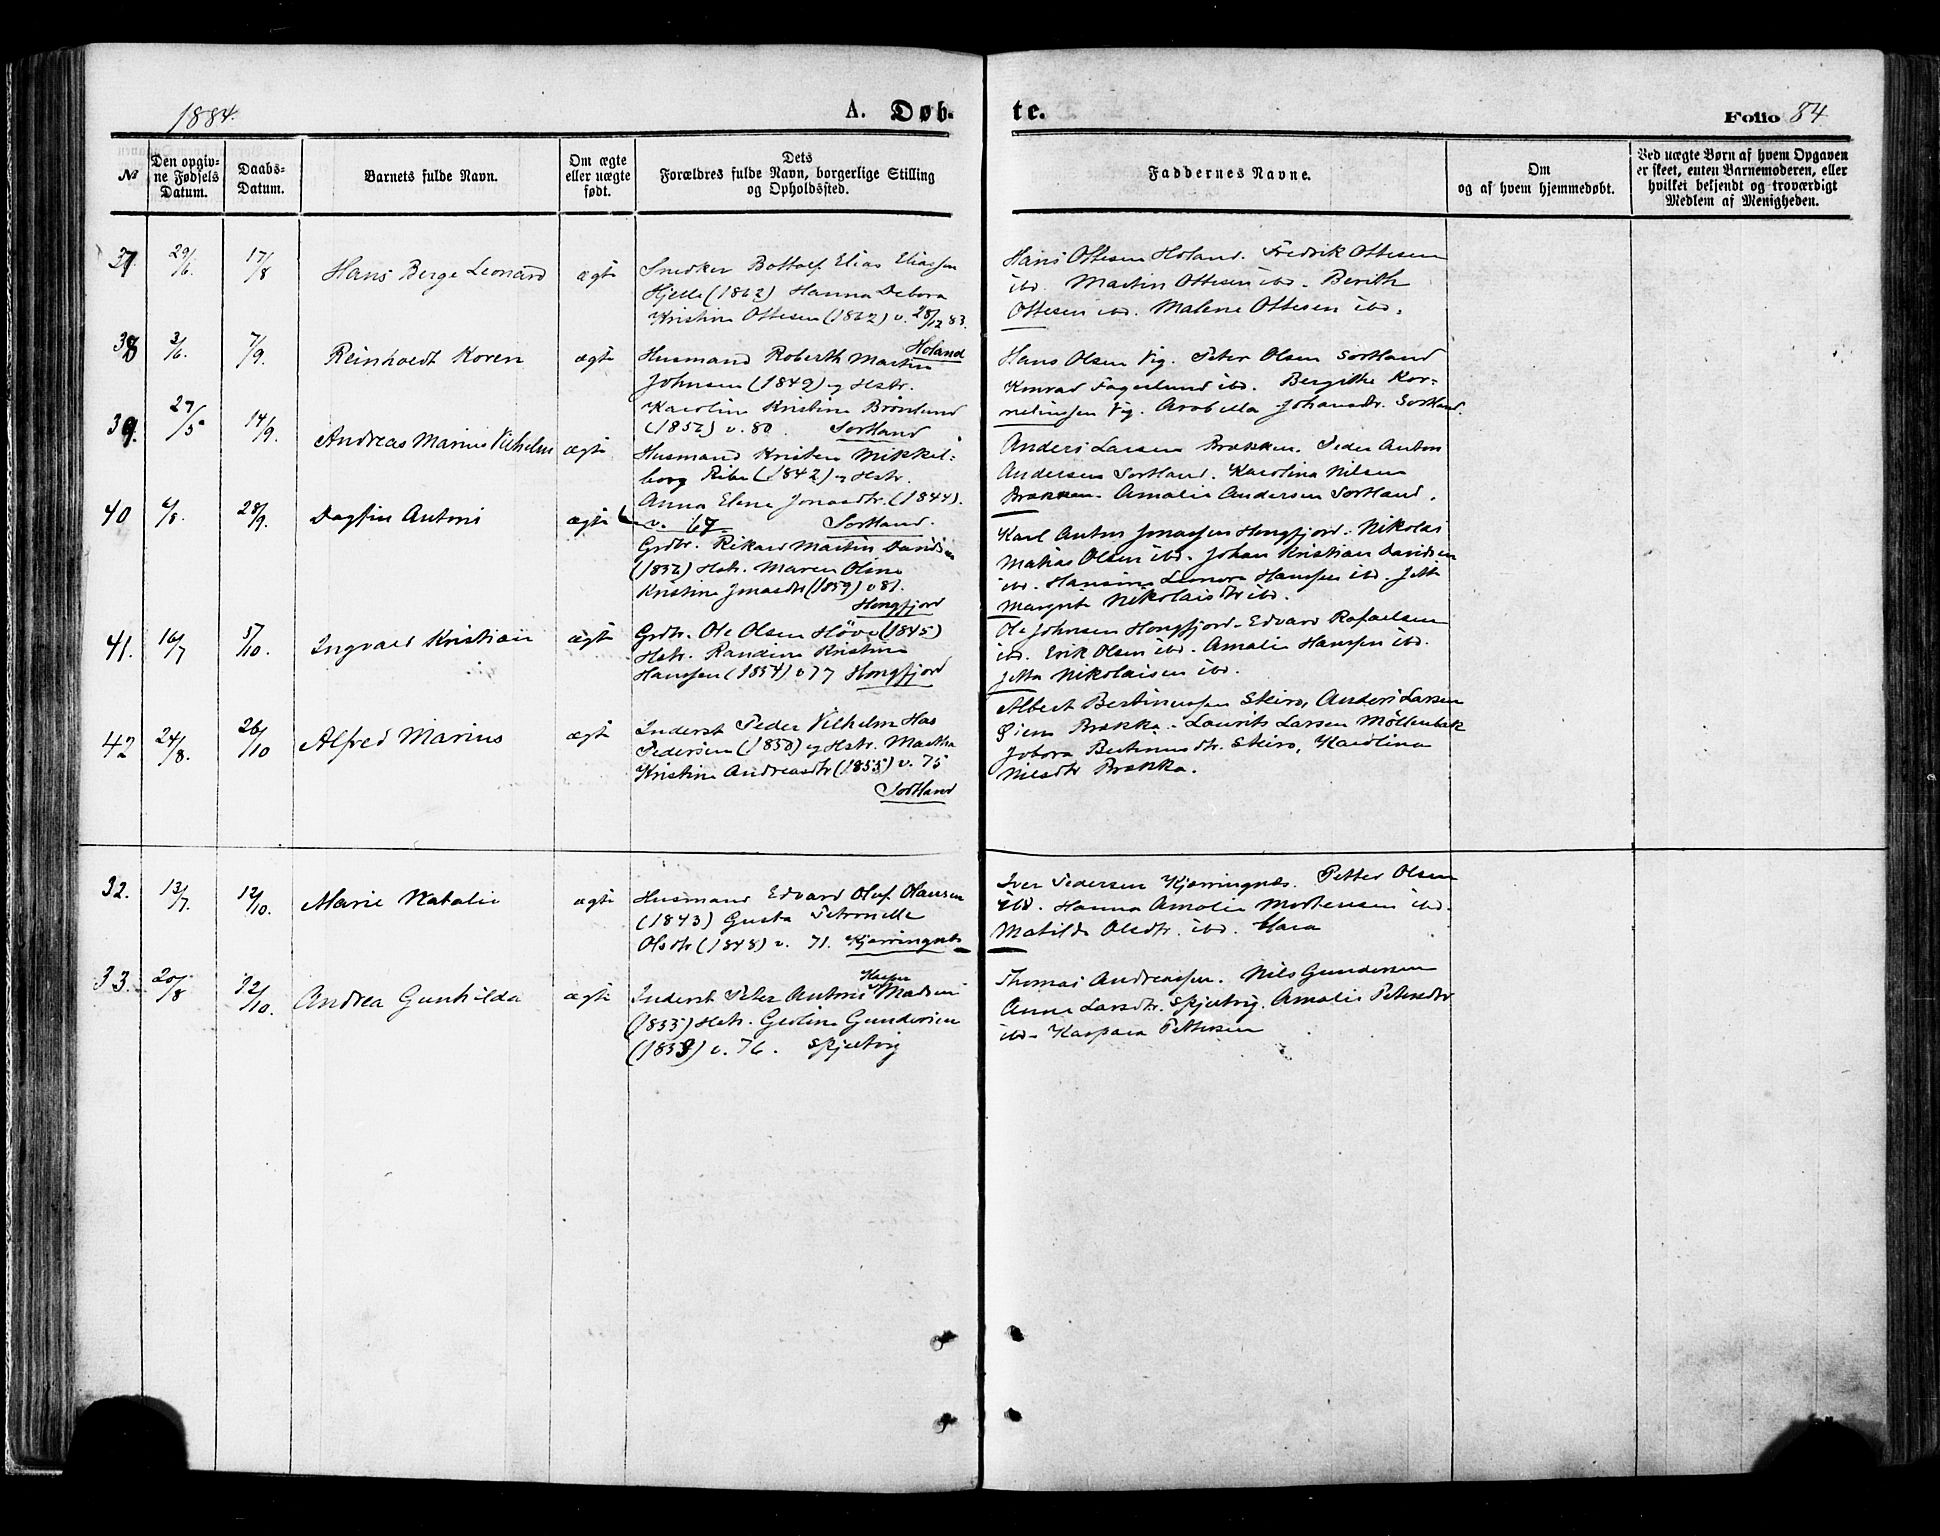 1884.
A. Døb- te.
Folio 84
№
Den opgiv-
ne Fødsels
Datum.
Daabs-
Datum.
Barnets fulde Navn.
Om ægte
eller uægte
født.
Dets
Forældres fulde Navn, borgerlige Stilling
og Opholdssted.
Faddernes Navne.
Om
og af hvem hjemmedøbt.
Ved uægte Børn af hvem Opgaven
er skeet, enten Barnemoderen, eller
hvilket bekjendt og troværdigt
Medlem af Menigheden.
37 29/6. 17/8 Hans Berge Leonard ægte
Snedker Bottolf Elias Eliassen
Hjelle (1862) Hanna Debora
Kristine Ottesen (1862) v. 28/12 83.
Holand
Hans Ottesen Holand. Fredrik Ottesen
ibd. Martin Ottesen ibd. Berith
Ottesen ibd. Malene Ottesen ibd.
38 3/6. 7/9. Reinholdt Koren ægte
Husmand Roberth Martin
Johnsen (1849) og Hstr.
Karoline Kristine Brønlund
(1852) v. 80. Sortland
Hans Olsen Vig. Peter Olsen Sortland
Konrad Fagerlund ibd. Bergithe Kor-
neliussen Vig. Arabella Johansdr. Sortland.
39. 27/5 14/9. Andreas Marius Vilhelm ægte
Husmand Kristen Mikkel-
borg Ribe (1842) og Hstr.
Anna Elene Jonasdtr. (1844).
v. 67 Sortland.
Anders Larsen Brækken. Peder Anton
Andersen Sortland. Karolina Nilsen
Brækken. Amalie Andersen Sortland.
40 6/8. 28/9. Dagfin Antoni ægte
Grdbr. Rikard Martin Davidsen
(1852) Hstr. Maren Oline
Kristine Jonasdtr (1859) v 81.
Hongfjord
Karl Anton Jonassen Hongfjord. Nikolai
Matias Olsen ibd. Johan Kristian Davidsen
ibd. Hansine Leonora Hanssen ibd. Jetta
Margrete Nikolaisdtr ibd.
41. 16/7 5/10. Ingvald Kristian ægte
Grdbr. Ole Olsen Höve (1845)
Hstr. Randine Kristine
Hanssen (1854) v 77 Hongfjord
Ole Johnsen Hongfjord. Edvard Rafaelsen
ibd. Erik Olsen ibd. Amalie Hanssen ibd.
Jetta Nikolaisen ibd.
42 24/8. 26/10 Alfred Marius ægte
Inderst Peder Vilhelm Has
Pedersen (1850) og Hstr. Martha
Kristine Andreasdtr (1855) v. 75
Sortland
Albert Bertinussen Skiro, Anders Larsen
Brækka. Laurits Larsen Möllenbak
Bertinusdtr. Skiro, Karolina
Nilsdtr Brækka.
32. 13/7. 12/10. Marie Natalie ægte
Husmand Edvard Oluf Olausen
(1843) Gusta Petronelle
Olsdtr (1848) v. 71. Kjærringnes
Iver Pedersen Kjærringnæs. Petter Olsen
ibd. Hanna Amalie Mortensen ibd.
Matilde Olsdtr. ibd. Klara
33. 20/8 12/10. Andrea Gunhilda ægte
Kasper
Inderst Peter Antoni Madsen
(1855) Hstr. Gerline Gundersen
(1853) v. 76. Skjelvig
Thomas Andreassen. Nils Gundersen
Anne Larsdtr. Skjelvig. Amalie Petersdtr
ibd. Kaspara Pettersen